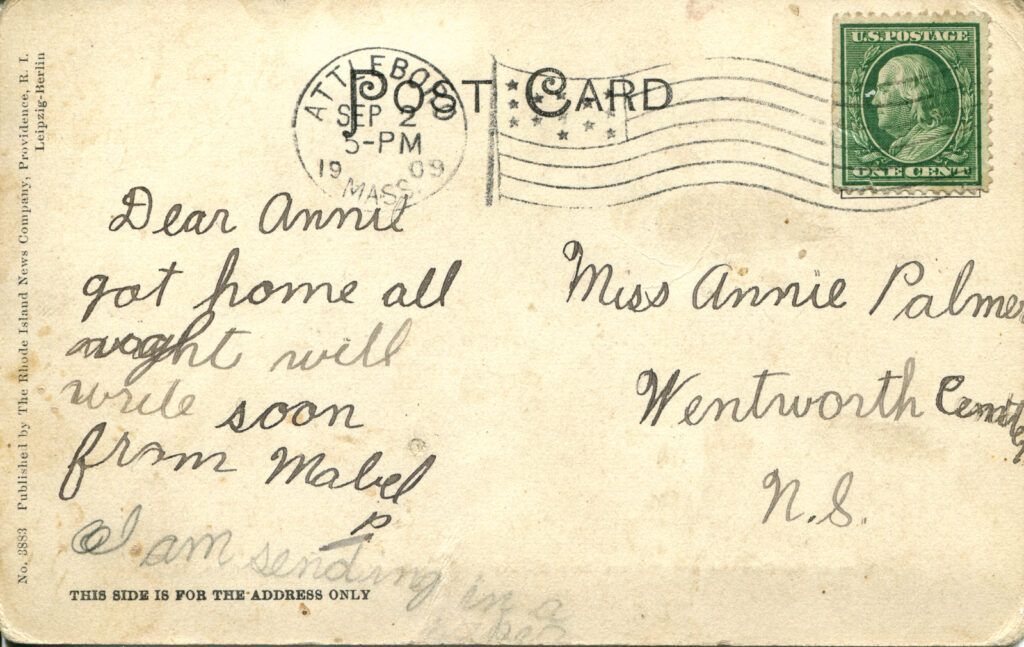 POST CARD
ATTLEBORO
SEP 2
5-PM
1909
MASS.
U.S. POSTAGE
ONE CENT
Dear Annie
got home all
wright will
write soon
from Mabel
P.
I am sending in a
Miss Annie Palmer
Wentworth
N.S.
THIS SIDE IS FOR THE ADDRESS ONLY
No. 3883 Published by The Rhode Island News Company, Providence, R. I.
Leipzig-Berlin